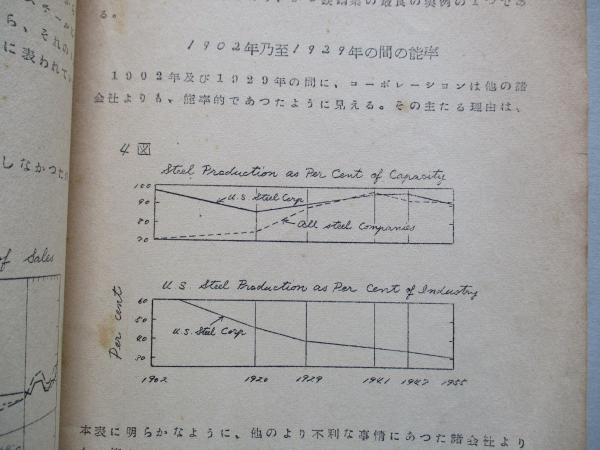 る。
1902年乃至1929年の間の能率
1902年及び1929年の間に、コーポレーションは他の諸
会社よりも、能率的であつたように見える。その主たる理由は、
しなかつた
of Sales
4図
Steel Production as Per Cent of Capacity
100
90
80
70
U.S. Steel Corp
All Steel Companies
U.S. Steel Production as Per Cent of Industry
Per cent
60
50
40
30
U.S. Steel Corp
1902 1920 1929 1941 1947 1955
本表に明らかなように、他のより不利な事情にあつた諸会社より